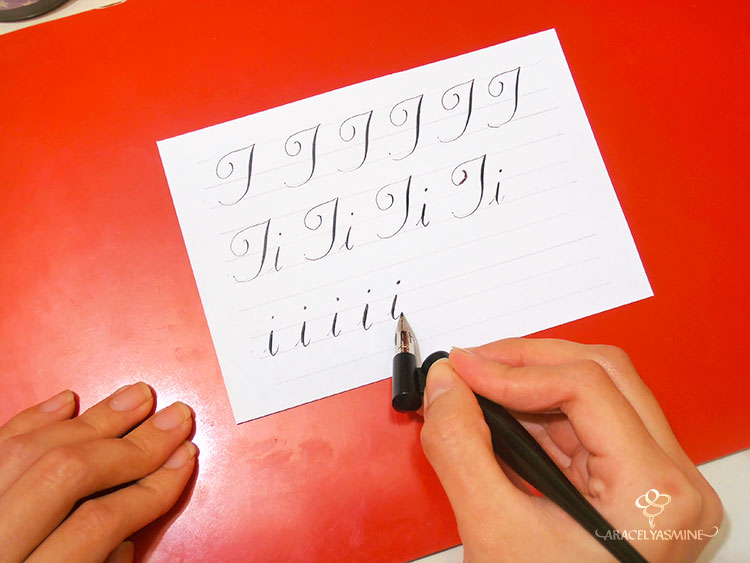 I I I I I I
Ii Ii Ii Ii
i i i i i
ARACELYASMINE